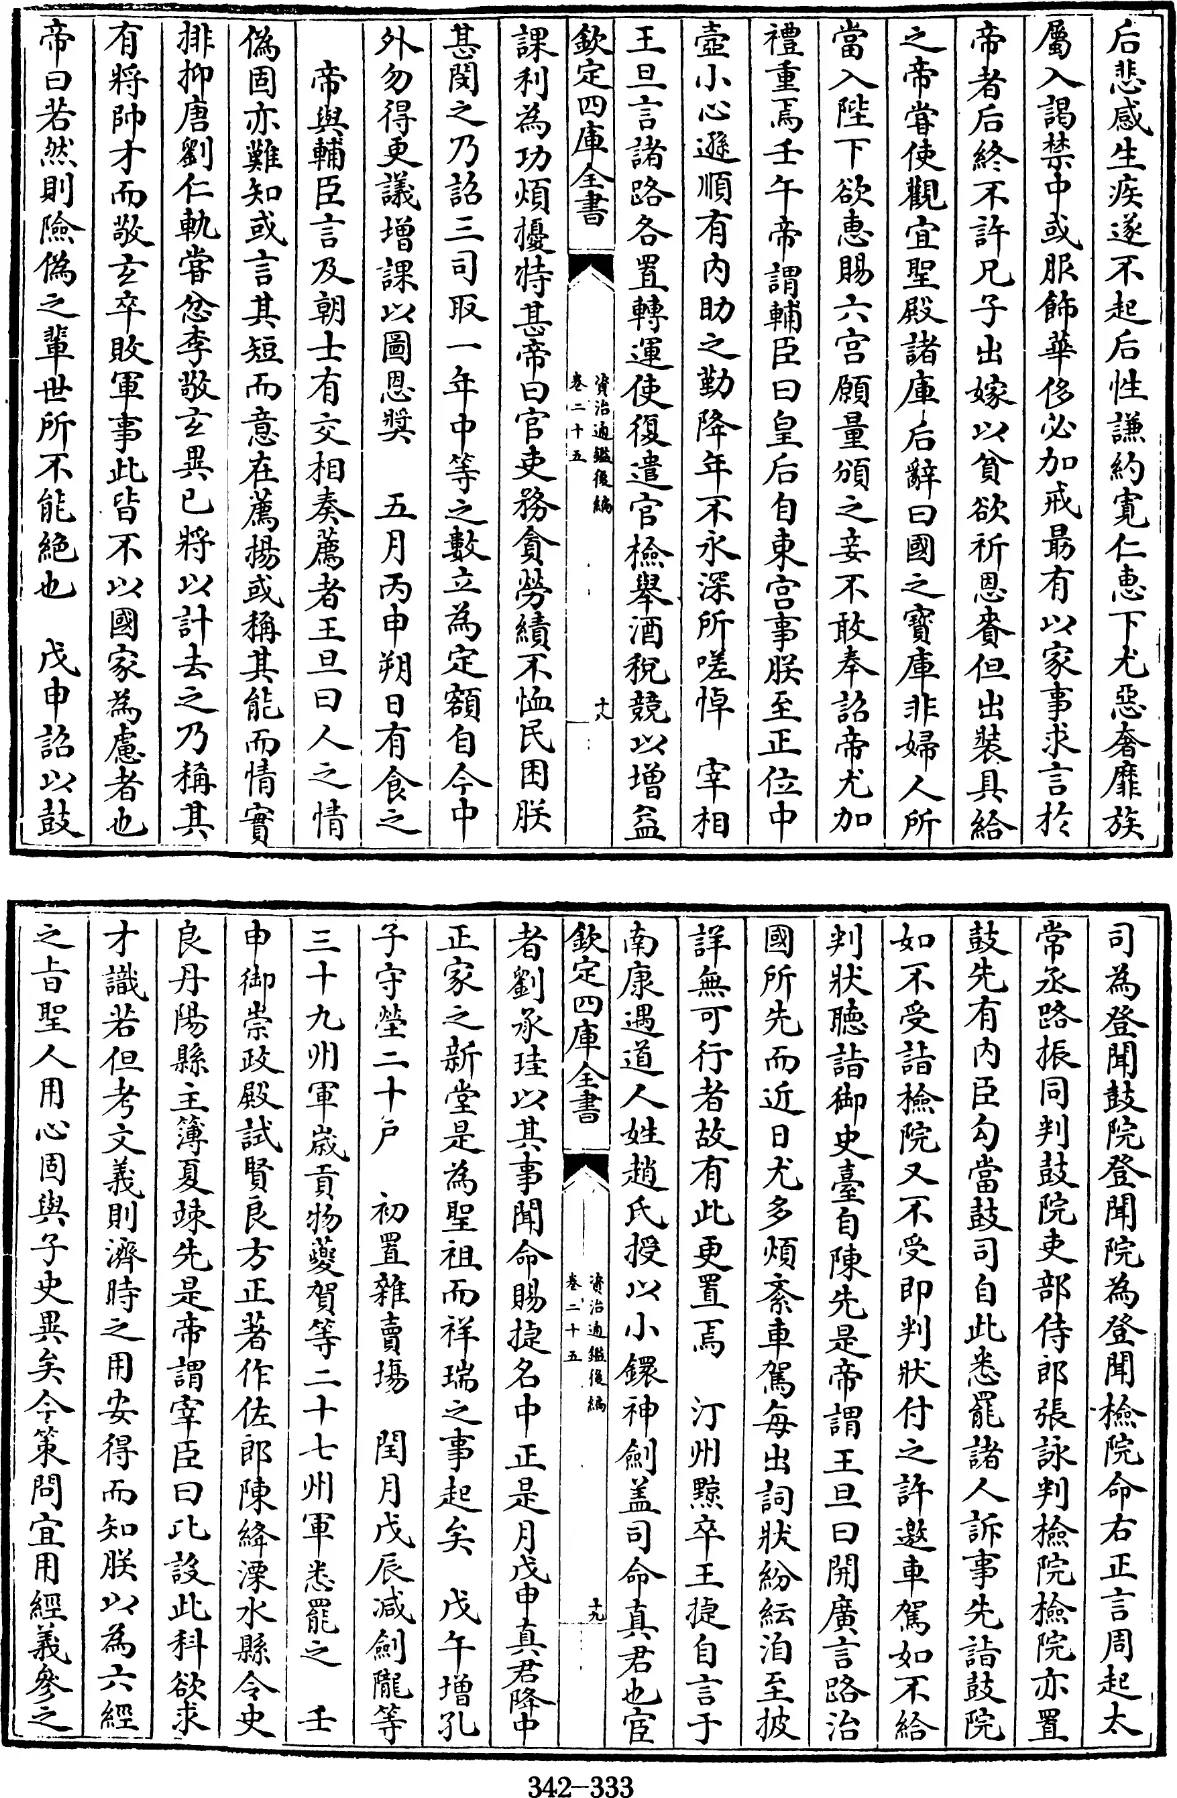 后悲感生疾遂不起后性謙約寛仁恵下尤惡奢靡族
屬入謁禁中或服飾華侈必加戒朂有以家事求言於
帝者后終不許兄子出嫁以貧欲祈恩賚但出裝具給
之帝嘗使觀宜聖殿諸庫后辭曰國之寳庫非婦人所
當入陛下欲惠賜六宫願量頒之妾不敢奉詔帝尤加
禮重焉壬午帝謂輔臣曰皇后自東宫事朕至正位中
壼小心遜順有内助之勤降年不永深所嗟悼　宰相
王旦言諸路各置轉運使復遣官檢舉酒税競以增益
欽定四庫全書
資治通鑑後編
卷二十五
十八
課利為功煩擾特甚帝曰官吏務貪勞績不恤民困朕
甚閔之乃詔三司取一年中等之數立為定額自今中
外勿得更議增課以圖恩奬　五月丙申朔日有食之
帝與輔臣言及朝士有交相奏薦者王旦曰人之情
偽固亦難知或言其短而意在薦揚或稱其能而情實
排抑唐劉仁軌嘗忿李敬玄異已將以計去之乃稱其
有將帥才而敬玄卒敗軍事此皆不以國家為慮者也
帝曰若然則險偽之輩世所不能絶也　戊申詔以鼓
司為登聞鼓院登聞院為登聞檢院命右正言周起太
常丞路振同判鼓院吏部侍郎張詠判檢院檢院亦置
鼓先有内臣勾當鼓司自此悉罷諸人訴事先詣鼓院
如不受詣檢院又不受即判狀付之許邀車駕如不給
判狀聽詣御史臺自陳先是帝謂王旦曰開廣言路治
國所先而近日尤多煩紊車駕每出詞狀紛紜洎至披
詳無可行者故有此更置焉　汀州黥卒王捷自言于
南康遇道人姓趙氏授以小鐶神劍盖司命真君也宦
欽定四庫全書
資治通鑑後編
卷二十五
十九
者劉承珪以其事聞命賜捷名中正是月戊申真君降中
正家之新堂是為聖祖而祥瑞之事起矣　戊午增孔
子守塋二十戸　初置雜賣塲　閏月戊辰减劍隴等
三十九州軍歲貢物夔賀等二十七州軍悉罷之　壬
申御崇政殿試賢良方正著作佐郎陳絳溧水縣令史
良丹陽縣主簿夏竦先是帝謂宰臣曰比設此科欲求
才識若但考文義則濟時之用安得而知朕以為六經
之旨聖人用心固與子史異矣今策問宜用經義參之
342—333